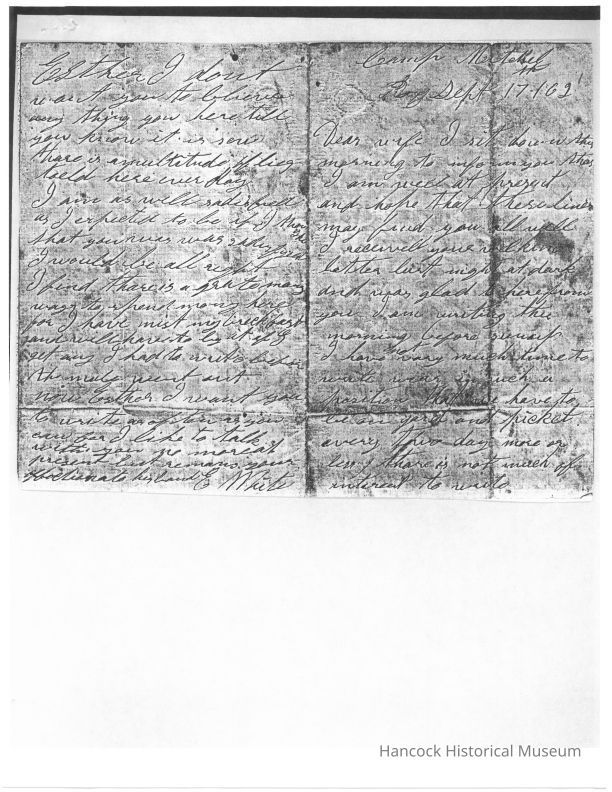 Camp Mitchel
Ky Sept 17th 1862
Dear wife I sit down this
morning to inform you that
I am well at present
and hope that these lines
may find you all well
I received your welkom
letter last night at dark
and was glad to here from
you I am writing this
morning before
I have vary much time to
write wear in such a
position that we have to
be on gard and picket
avery two day more or
less there is not much of
interest to write
Esther I dont
want you to bleive
any thing you here till
you know it is so
there is a multitude of lies
told here ever day
I am as well satisfied
as I expected to be if I knew
that you was satisfied
I would be all right
I find there is a grate many
ways to spend mony here
for I have mist my breckfast
and will have to by it if I
get any I had to write before
the male went out
now Esther I want you
to write as often as you
can for I like to talk
with you no more at
present but remans your
affectionate husband E White
Hancock Historical Museum